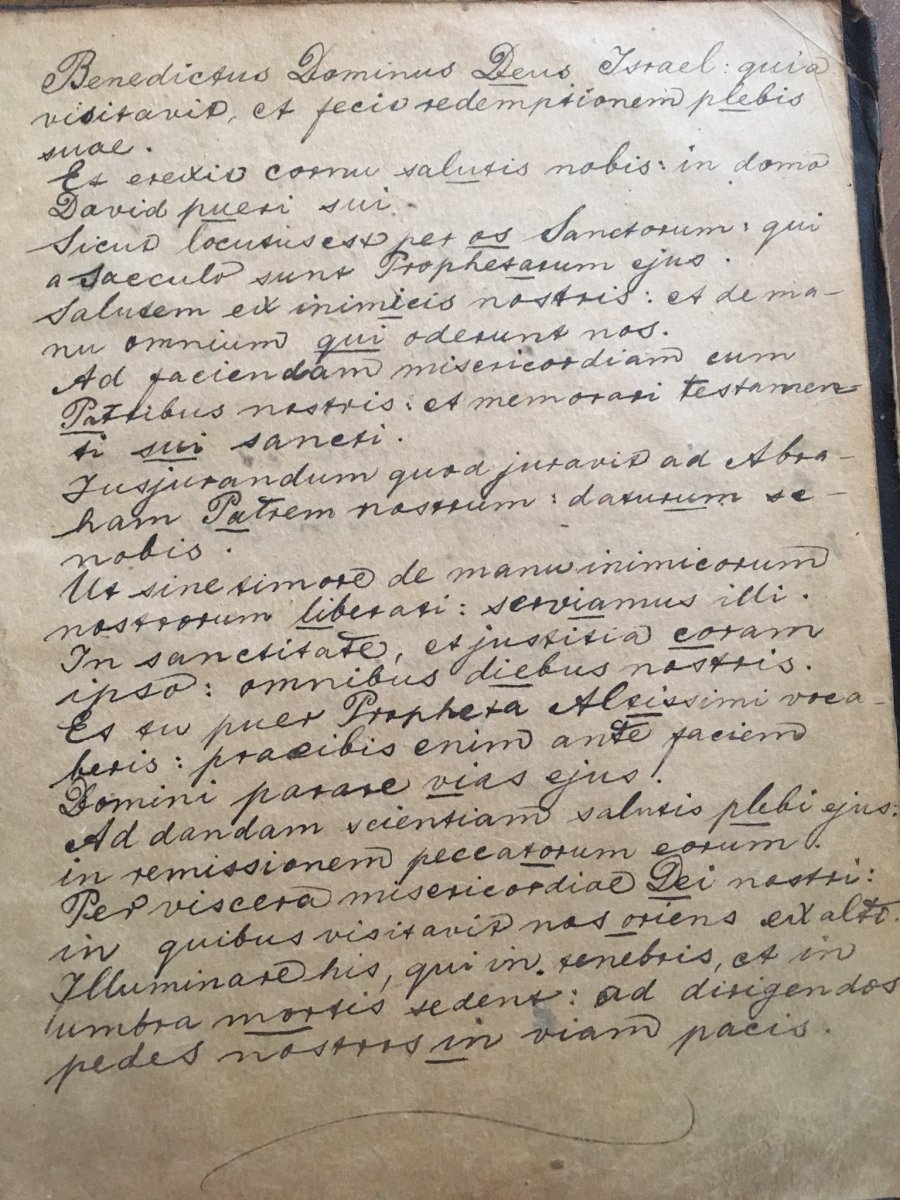 Benedictus Dominus Deus Israel: quia
visitavit, et fecit redemptionem plebis
suae.
Et erexit cornu salutis nobis: in domo
David pueri sui.
Sicut locutus est per os Sanctorum: qui
a saeculo sunt Prophetarum ejus.
Salutem ex inimicis nostris: et de ma-
nu omnium qui oderunt nos.
Ad faciendam misericordiam cum
Patribus nostris: et memorari testamen-
ti sui sancti.
Jusjurandum quod juravit ad Abra-
ham Patrem nostrum: daturum se-
nobis.
Ut sine timore de manu inimicorum
nostrorum liberati: serviamus illi.
In sanctitate, et justitia coram
ipso: omnibus diebus nostris.
Et tu puer Propheta Altissimi voca-
beris: praeibis enim ante faciem
Domini parare vias ejus.
Ad dandam scientiam salutis plebi ejus:
in remissionem peccatorum eorum.
Per viscera misericordiae Dei nostri:
in quibus visitavit nos oriens ex alto.
Illuminare his, qui in tenebris, et in
umbra mortis sedent: ad dirigendos
pedes nostros in viam pacis.